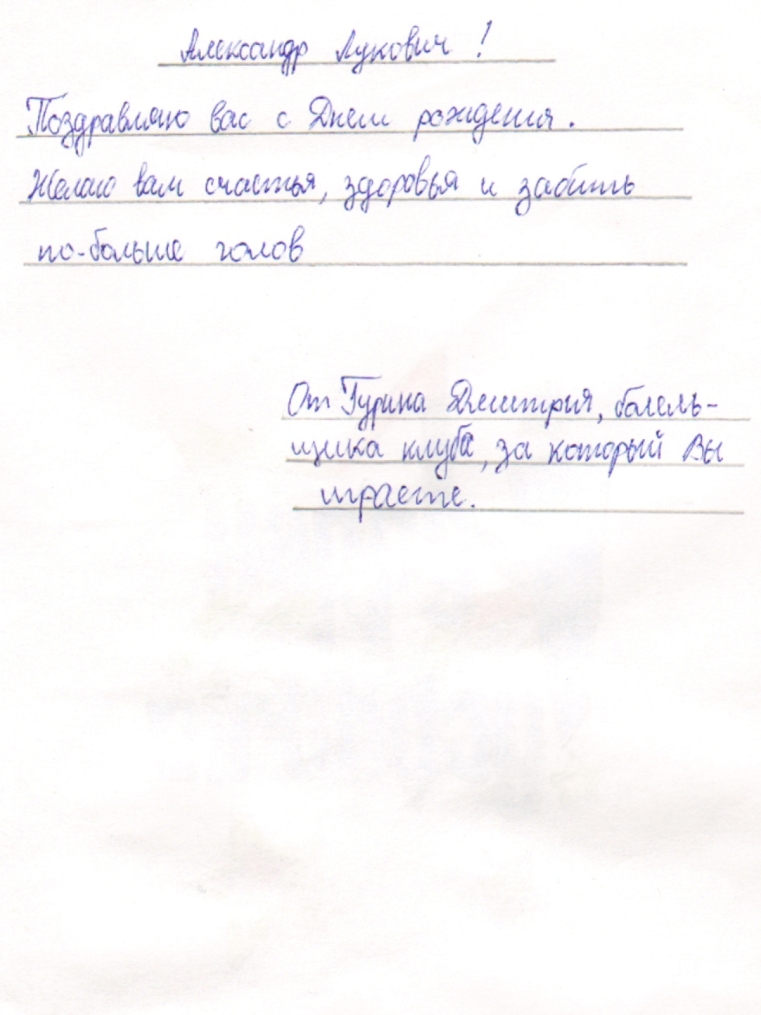 Александр Лукович!
Поздравляю вас с Днем рождения.
Желаю вам счастья, здоровья и забить
по-больше голов
От Гурина Дмитрия, болель-
щика клуба, за который Вы
играете.